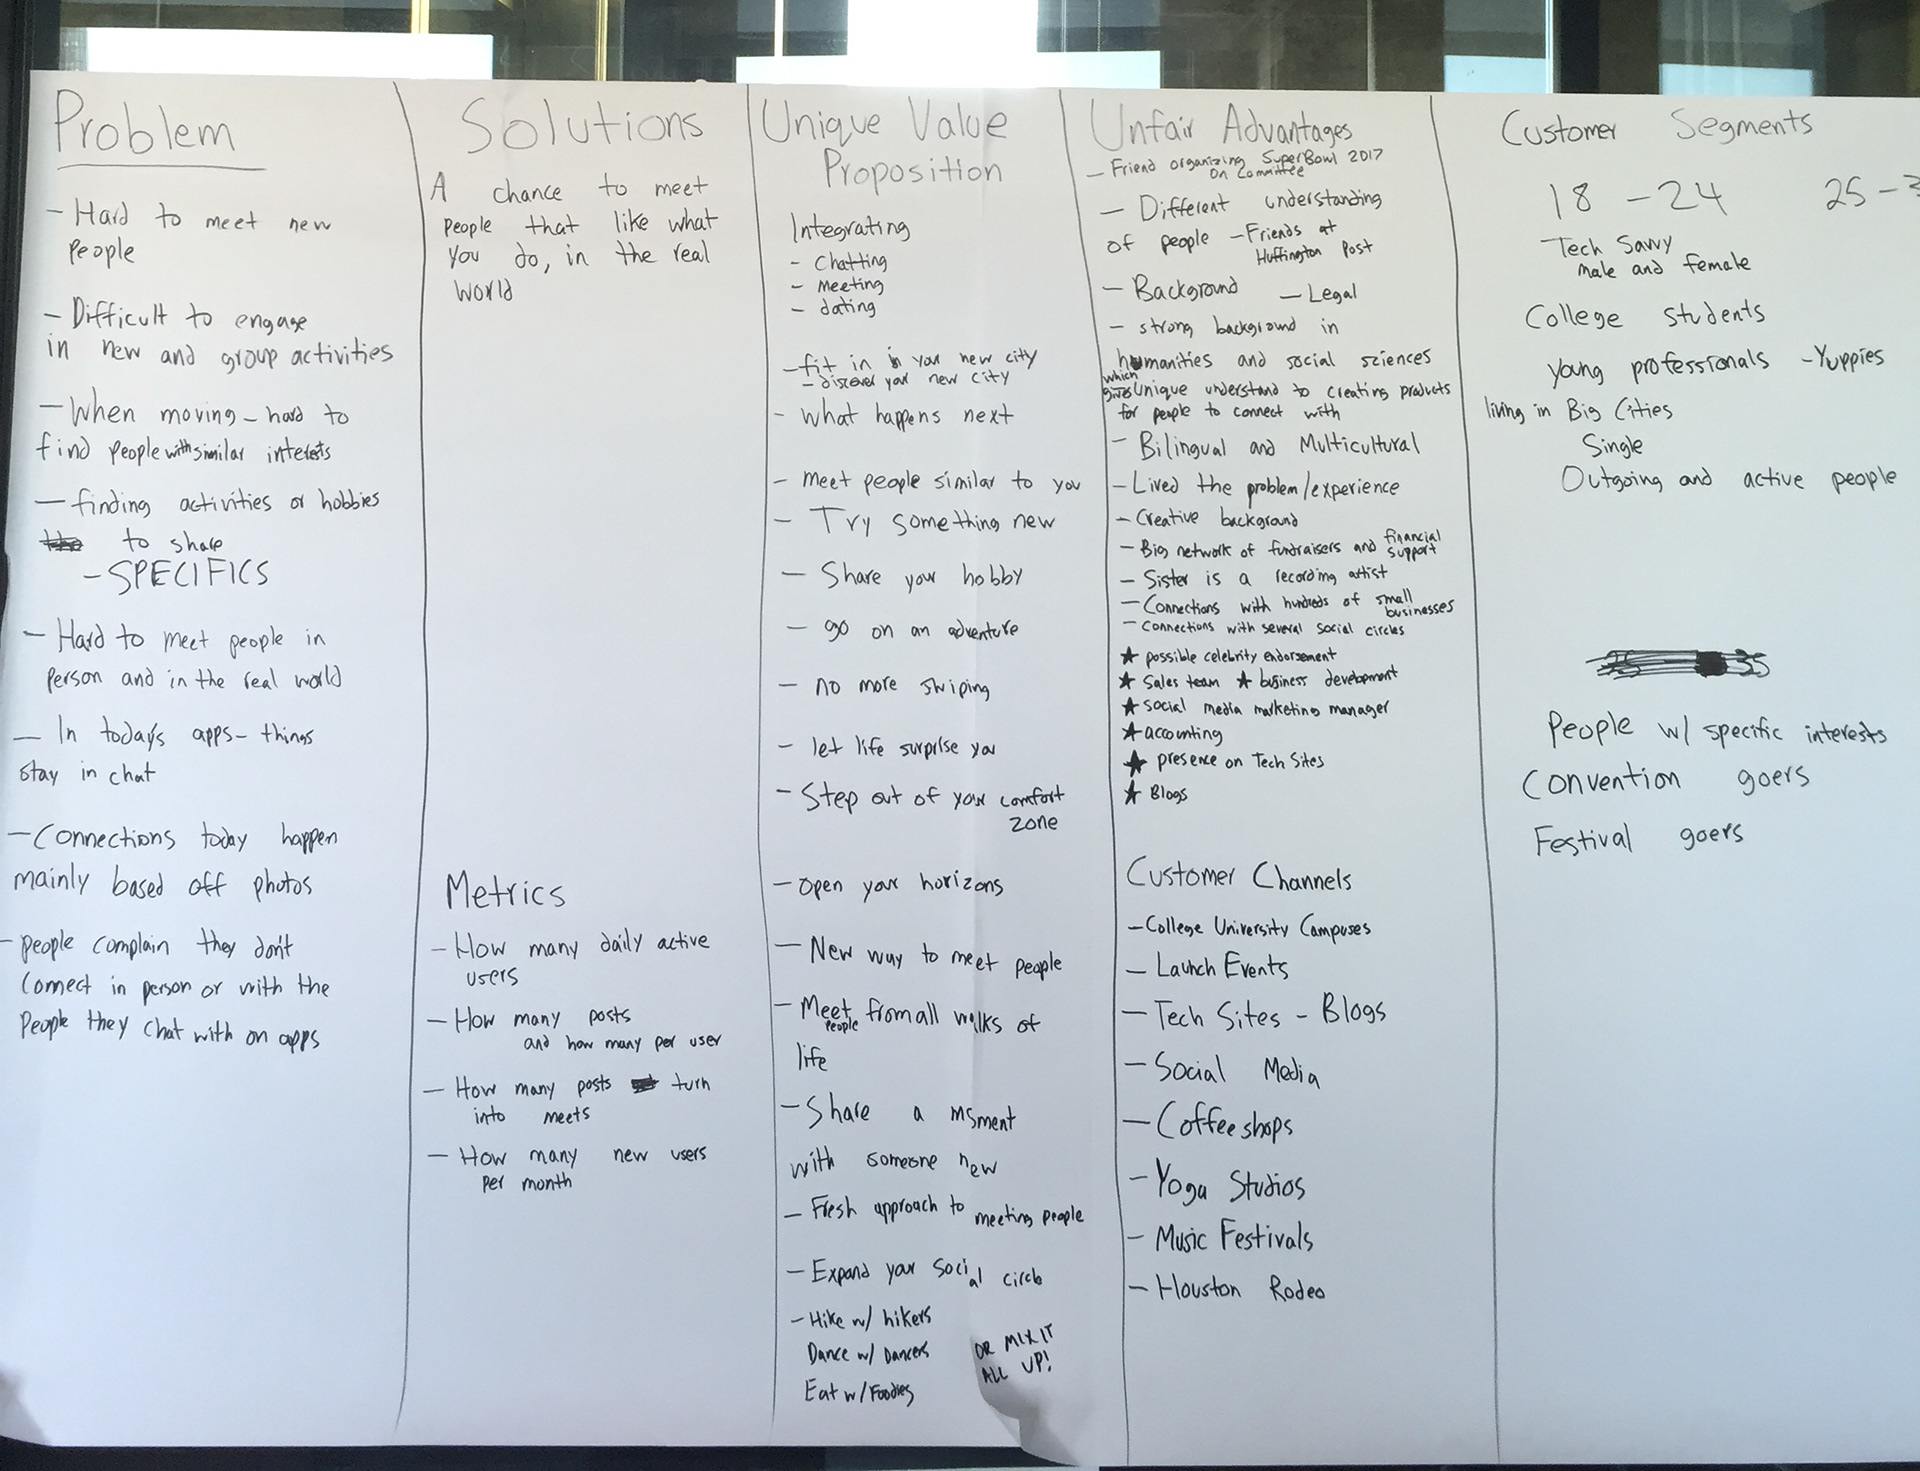 Problem
- Hard to meet new
People
- Difficult to engage
in new and group activities
- When moving - hard to
find people with similar interests
- finding activities or hobbies
to share
- SPECIFICS
- Hard to meet people in
person and in the real world
- In today's apps - things
stay in chat
- Connections today happen
mainly based off photos
- people complain they don't
connect in person or with the
People they chat with on apps
Solutions
A chance to meet
people that like what
you do, in the real
world
Metrics
- How many daily active
users
- How many posts
and how many per user
- How many posts turn
into meets
- How many new users
per month
Unique Value
Proposition
Integrating
- Chatting
- meeting
- dating
- fit in in your new city
- discover your new city
- what happens next
- meet people similar to you
- Try something new
- Share your hobby
- go on an adventure
- no more swiping
- let life surprise you
- Step out of your comfort
zone
- open your horizons
- New way to meet people
- Meet people from all walks of
life
- Share a moment
with someone new
- Fresh approach to meeting people
- Expand your social circle
- Hike w/ hikers
Dance w/ Dancers
Eat w/ Foodies
OR MIX IT
ALL UP!
Unfair Advantages
- Friend organizing SuperBowl 2017
On Committee
- Different understanding
of people - Friends at
Huffington Post
- Background - Legal
- strong background in
humanities and social sciences
which gives Unique understand to creating products
for people to connect with
- Bilingual and Multicultural
- Lived the problem/experience
- Creative background
- Big network of fundraisers and financial
support
- Sister is a recording artist
- Connections with hundreds of small
businesses
- Connections with several social circles
★ possible celebrity endorsement
★ Sales team ★ business development
★ social media marketing manager
★ accounting
★ presence on Tech Sites
★ Blogs
Customer Channels
- College University Campuses
- Launch Events
- Tech Sites - Blogs
- Social Media
- Coffee shops
- Yoga Studios
- Music Festivals
- Houston Rodeo
Customer Segments
18 - 24 25 -
Tech Savvy
male and female
College students
young professionals - Yuppies
living in Big Cities
Single
Outgoing and active people
People w/ specific interests
Convention goers
Festival goers